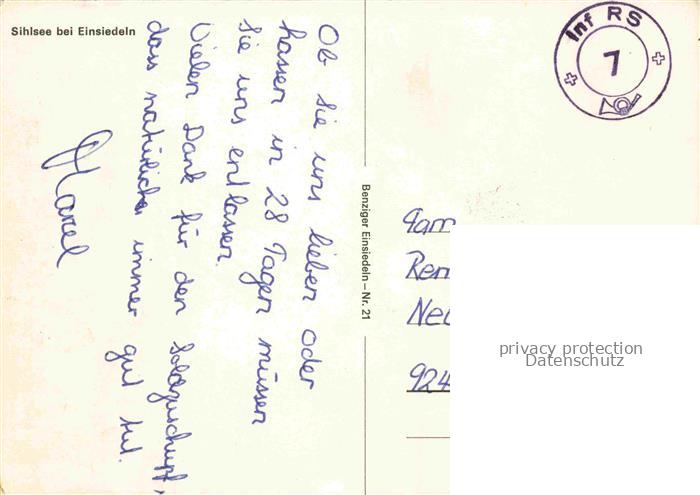 Sihlsee bei Einsiedeln
Ob sie uns lieben oder
hassen in 28 Tagen müssen
sie uns entlassen.
Vielen Dank für den Soldzuschupf,
dass natürlich immer gut tut.
Marcel
Benziger Einsiedeln – Nr. 21
Inf RS
7
Fam
Ren
Neu
924
privacy protection
Datenschutz